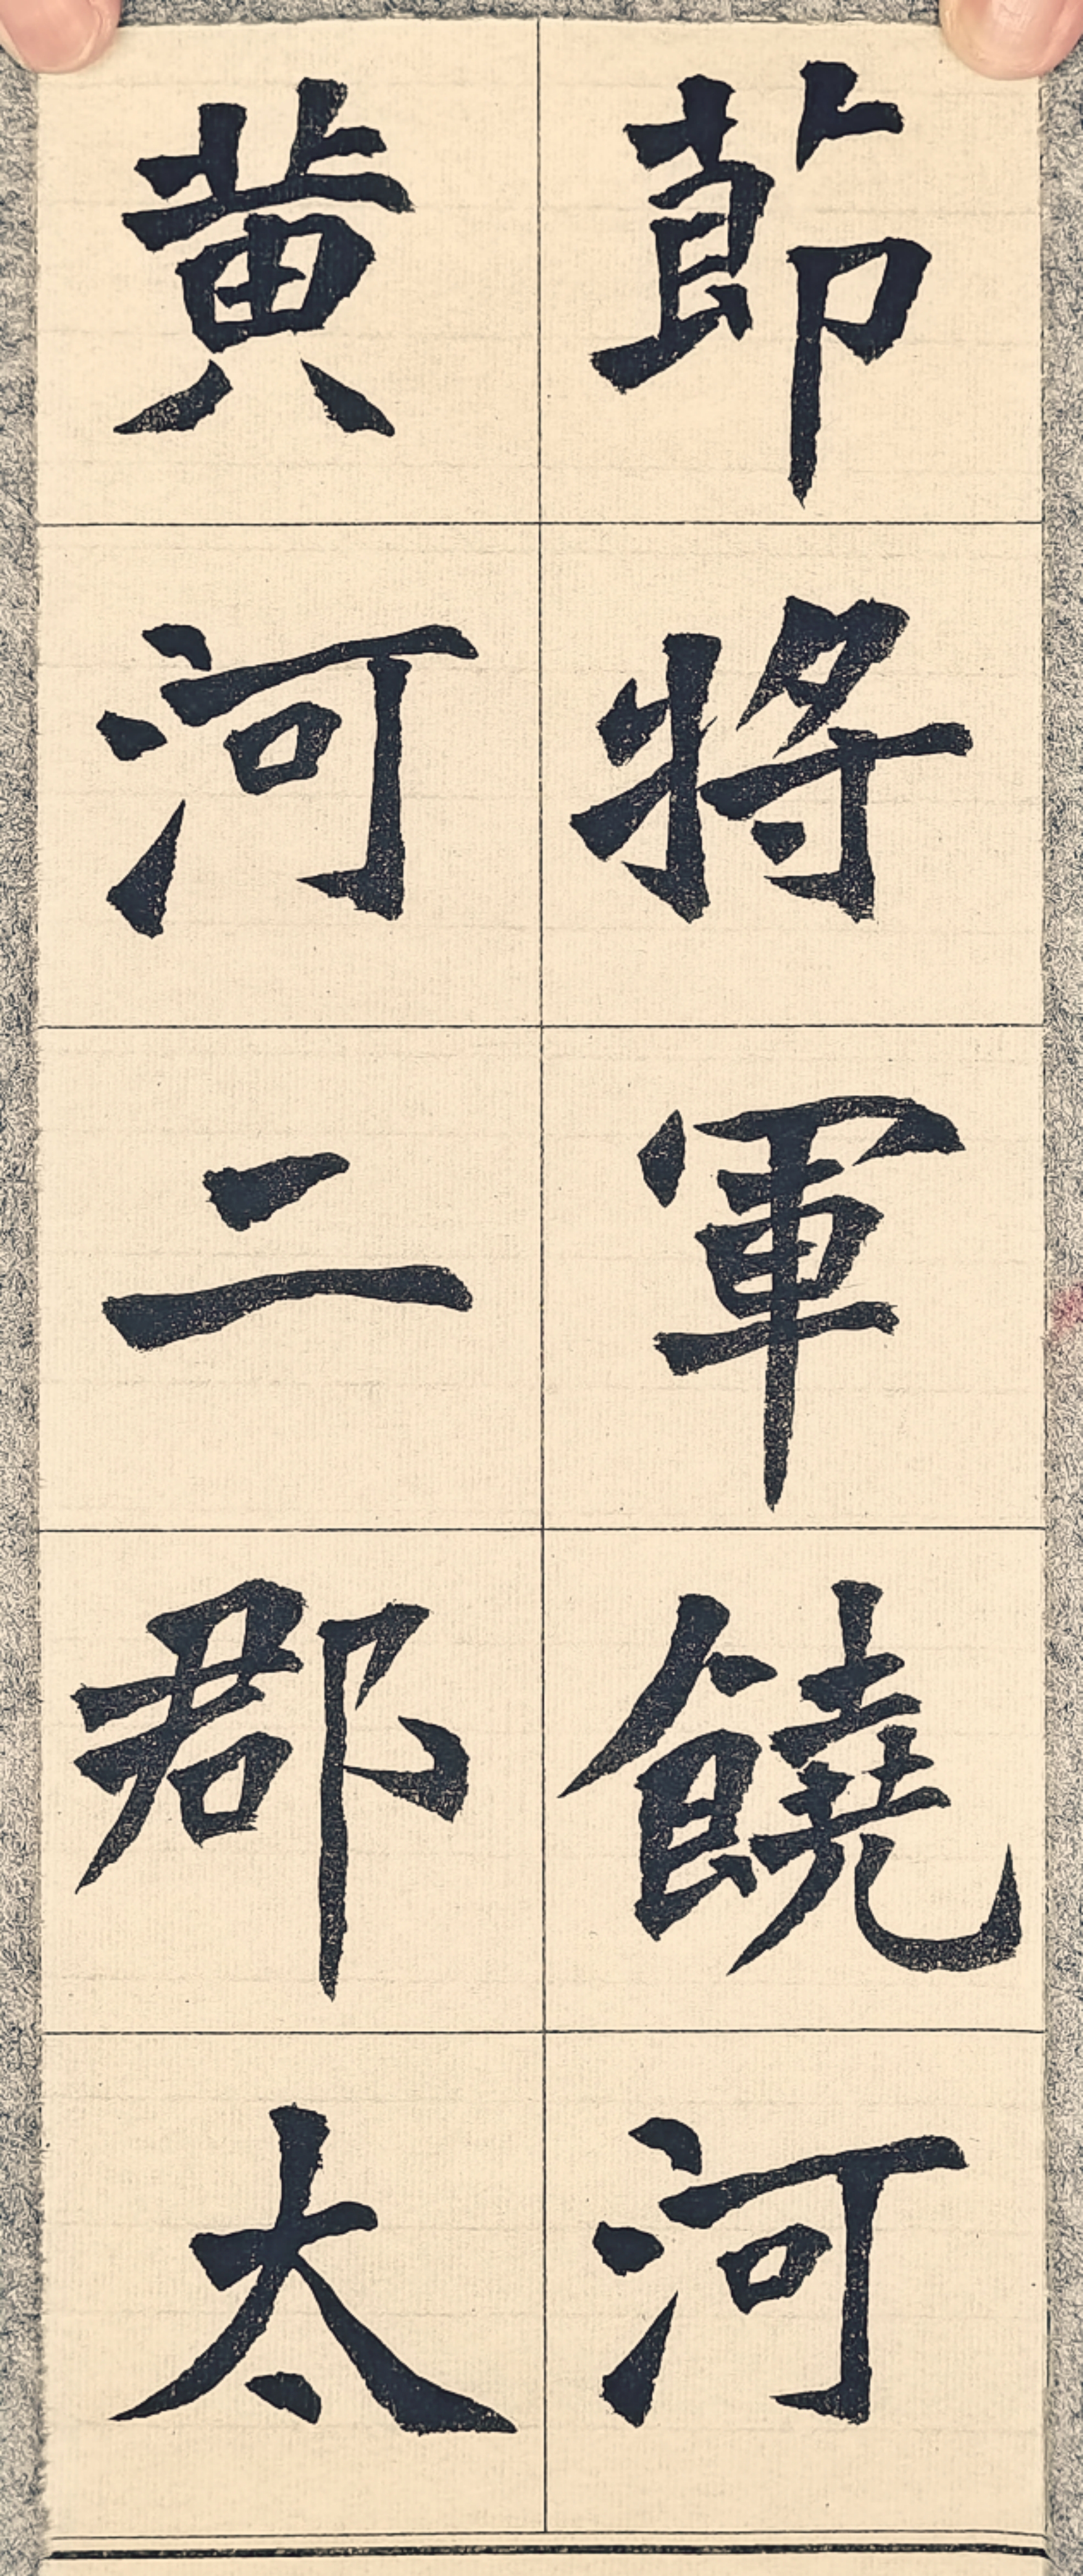 節將軍饒河
黄河二郡太